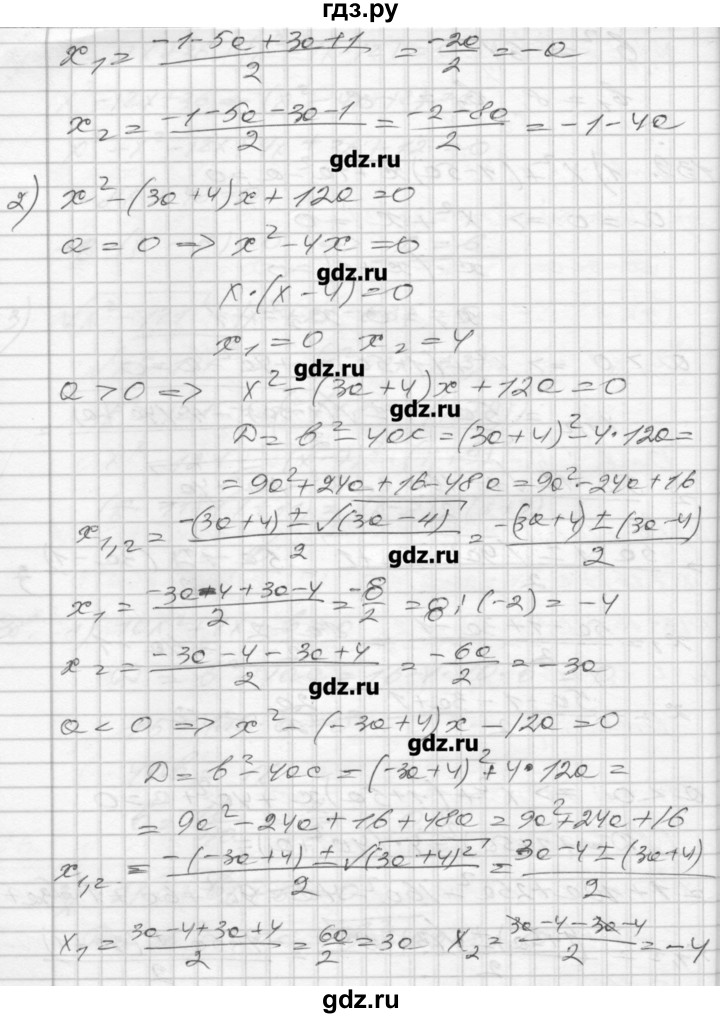 гдз.ру
x₁ = (-1-5a+3a+1)/2 = -2a/2 = -a
x₂ = (-1-5a-3a-1)/2 = (-2-8a)/2 = -1-4a
gdz.ru
2) x² - (3a+4)x + 12a = 0
a = 0 => x² - 4x = 0
gdz.ru
x·(x-4) = 0
x₁ = 0 x₂ = 4
gdz.ru
a > 0 => x² - (3a+4)x + 12a = 0
gdz.ru
D = b² - 4ac = (3a+4)² - 4·12a =
= 9a² + 24a + 16 - 48a = 9a² - 24a + 16
x₁,₂ = (-(3a+4) ± √(3a-4)²)/2 = (-(3a+4) ± (3a-4))/2
gdz.ru
x₁ = (-3a-4+3a-4)/2 = -8/2 = 8:(-2) = -4
x₂ = (-3a-4-3a+4)/2 = -6a/2 = -3a
gdz.ru
a < 0 => x² - (-3a+4)x - 12a = 0
gdz.ru
D = b² - 4ac = (-3a+4)² + 4·12a =
= 9a² - 24a + 16 + 48a = 9a² + 24a + 16
x₁,₂ = (-(-3a+4) ± √(3a+4)²)/2 = (3a-4 ± (3a+4))/2
x₁ = (3a-4+3a+4)/2 = 6a/2 = 3a x₂ = (3a-4-3a-4)/2 = -4
gdz.ru